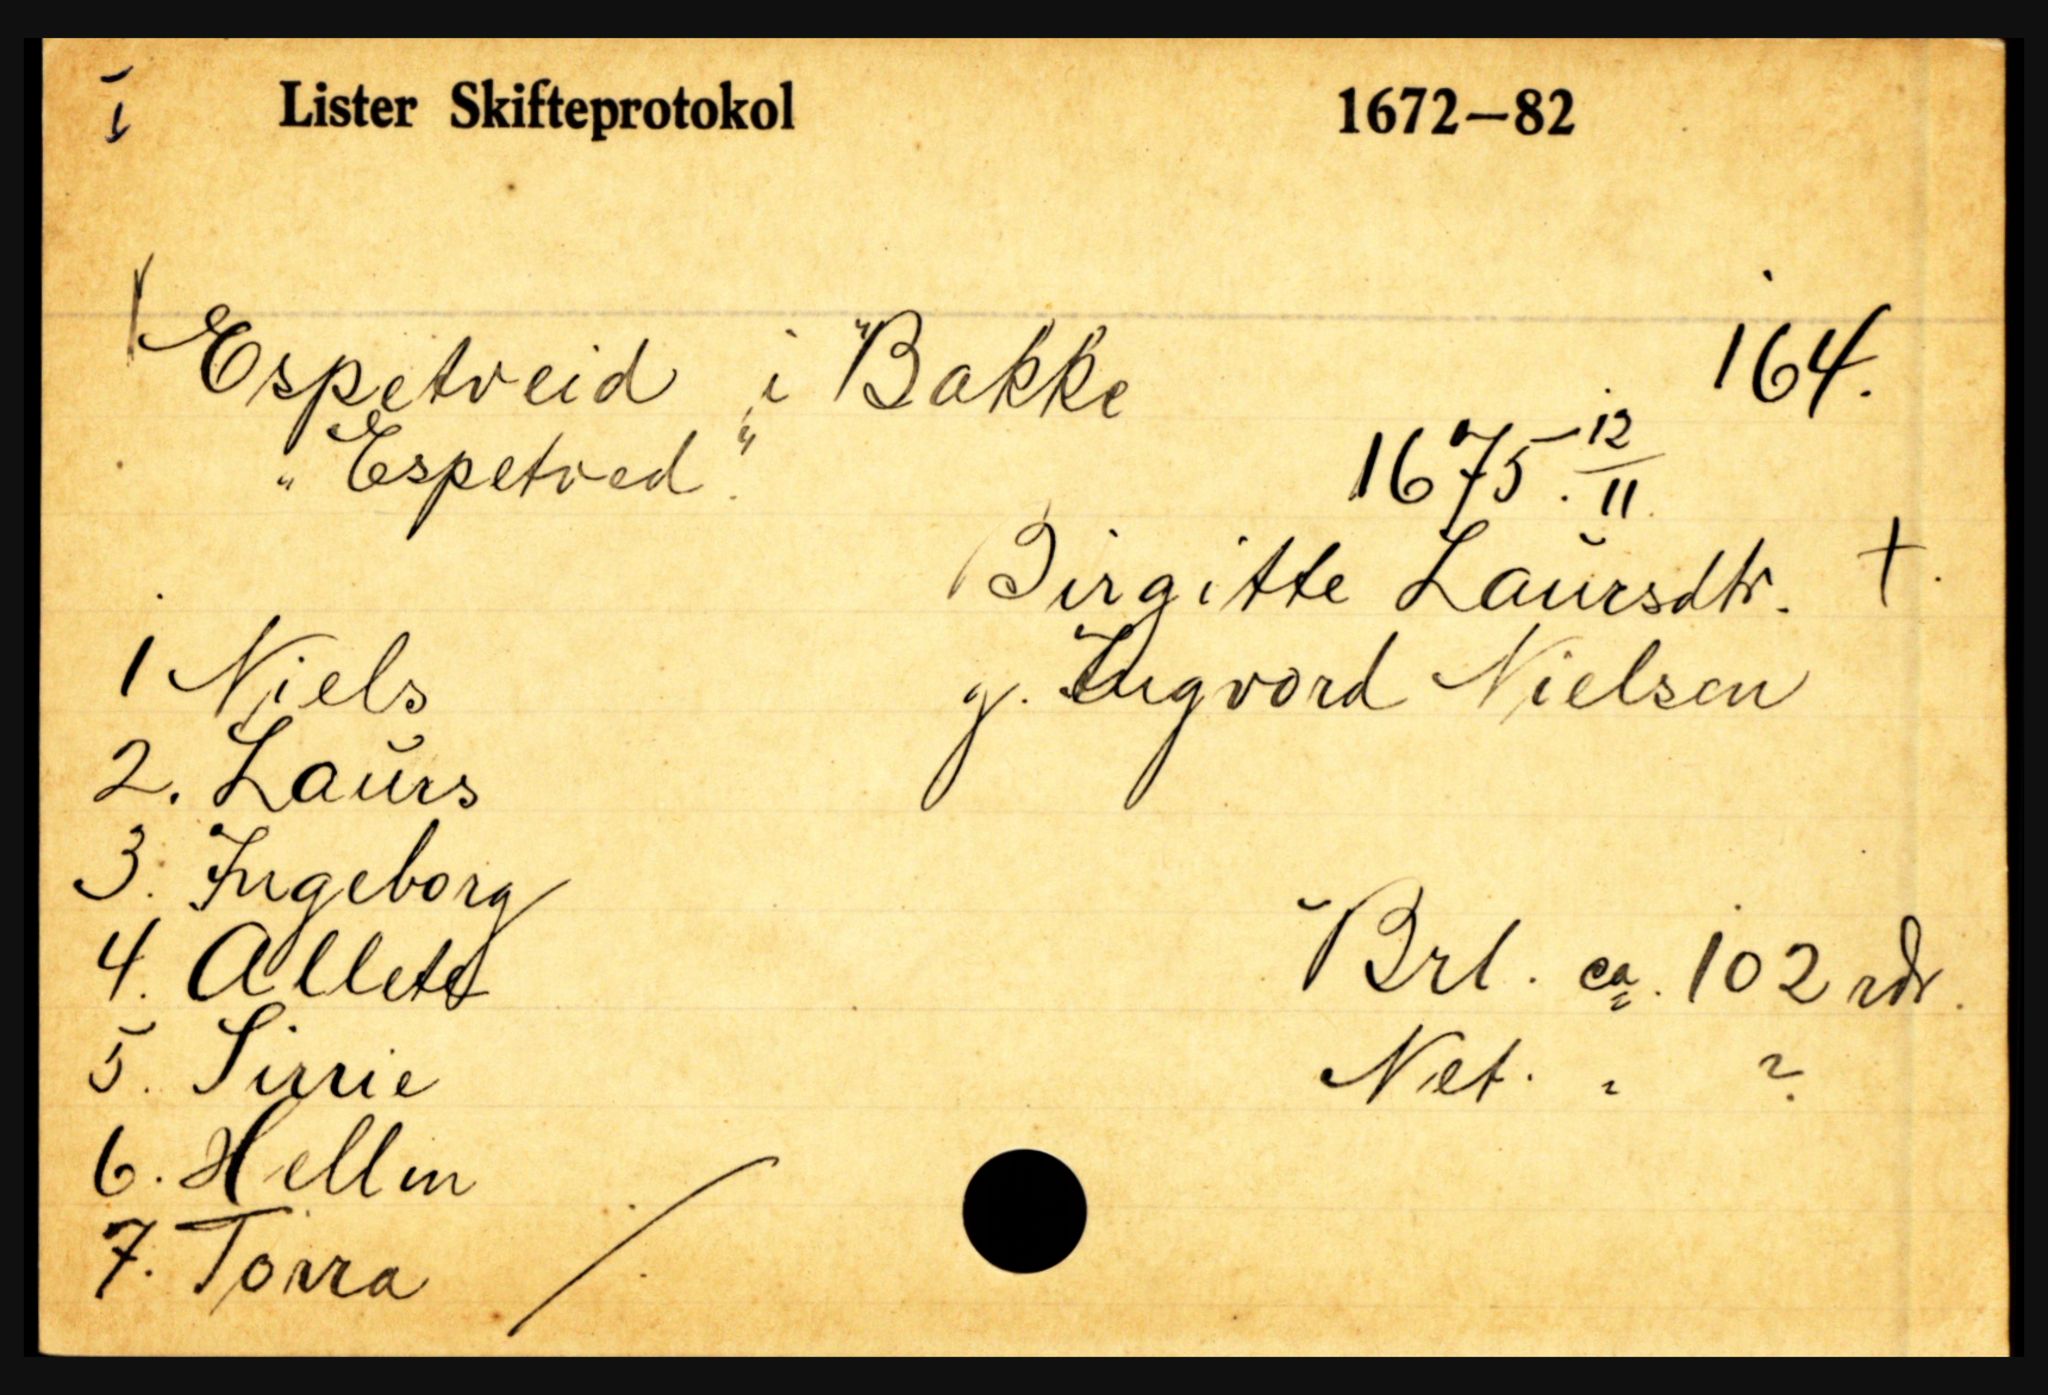 I Lister Skifteprotokol 1672—82
Espetveid i Bakke 164.
"Espetved" 1675 12/11
Birgitte Laursdtr. †.
g. Ingvord Nielsen
1 Niels
2. Laurs
3. Ingeborg
4. Allete
5. Sirrie
6. Hellin
7. Torra
Brl. ca. 102 rdr.
Net. " ?